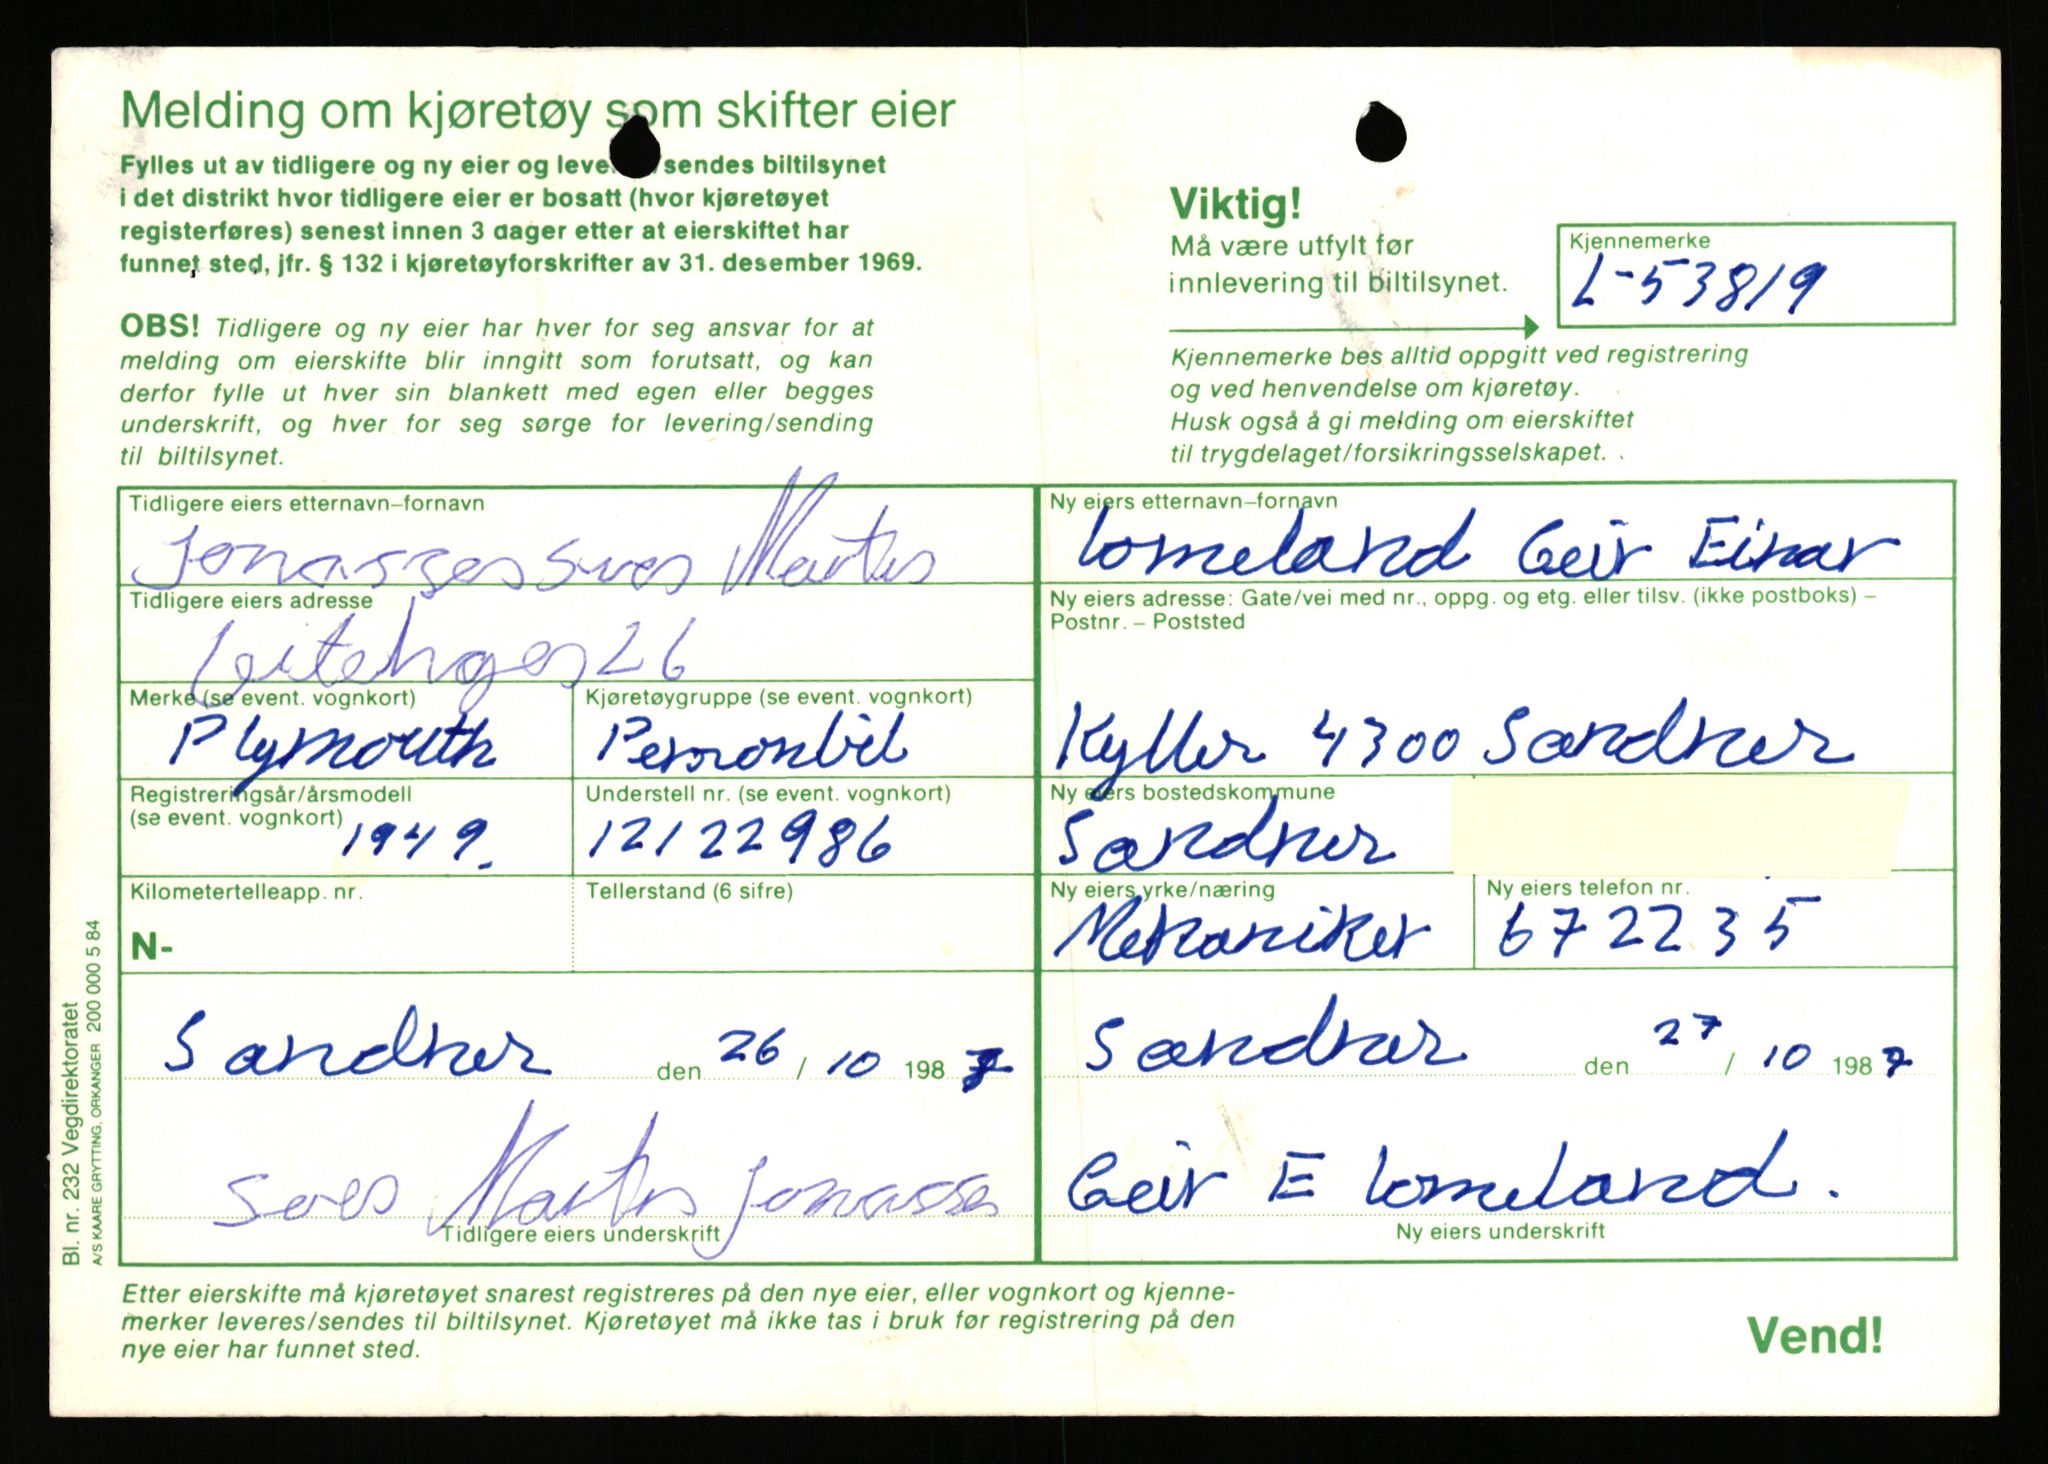 Melding om kjøretøy som skifter eier
Fylles ut av tidligere og ny eier og leve /sendes biltilsynet
i det distrikt hvor tidligere eier er bosatt (hvor kjøretøyet
registerføres) senest innen 3 dager etter at eierskiftet har
funnet sted, jfr. § 132 i kjøretøyforskrifter av 31. desember 1969.
OBS! Tidligere og ny eier har hver for seg ansvar for at
melding om eierskifte blir inngitt som forutsatt, og kan
derfor fylle ut hver sin blankett med egen eller begges
underskrift, og hver for seg sørge for levering/sending
til biltilsynet.
Viktig!
Må være utfylt før
innlevering til biltilsynet.
Kjennemerke
L-53819
Kjennemerke bes alltid oppgitt ved registrering
og ved henvendelse om kjøretøy.
Husk også å gi melding om eierskiftet
til trygdelaget/forsikringsselskapet.
Tidligere eiers etternavn–fornavn
Jonassen Sven Martin
Tidligere eiers adresse
Leitehagen 26
Merke (se event. vognkort)
Plymouth
Kjøretøygruppe (se event. vognkort)
Personbil
Registreringsår/årsmodell
(se event. vognkort)
1949.
Understell nr. (se event. vognkort)
12122986
Kilometertelleapp. nr.
N-
Tellerstand (6 sifre)
Sandnes den 26 / 10 1987
Sven Martin Jonassen
Tidligere eiers underskrift
Ny eiers etternavn–fornavn
Lomeland Geir Einar
Ny eiers adresse: Gate/vei med nr., oppg. og etg. eller tilsv. (ikke postboks) –
Postnr. – Poststed
Kyller 4300 Sandnes
Ny eiers bostedskommune
Sandnes
Ny eiers yrke/næring
Mekaniker
Ny eiers telefon nr.
672235
Sandnes den 27 / 10 1987
Geir E Lomeland.
Ny eiers underskrift
Etter eierskifte må kjøretøyet snarest registreres på den nye eier, eller vognkort og kjenne-
merker leveres/sendes til biltilsynet. Kjøretøyet må ikke tas i bruk før registrering på den
nye eier har funnet sted.
Vend!
Bl. nr. 232 Vegdirektoratet
A/S KAARE GRYTTING, ORKANGER 200 000 5 84